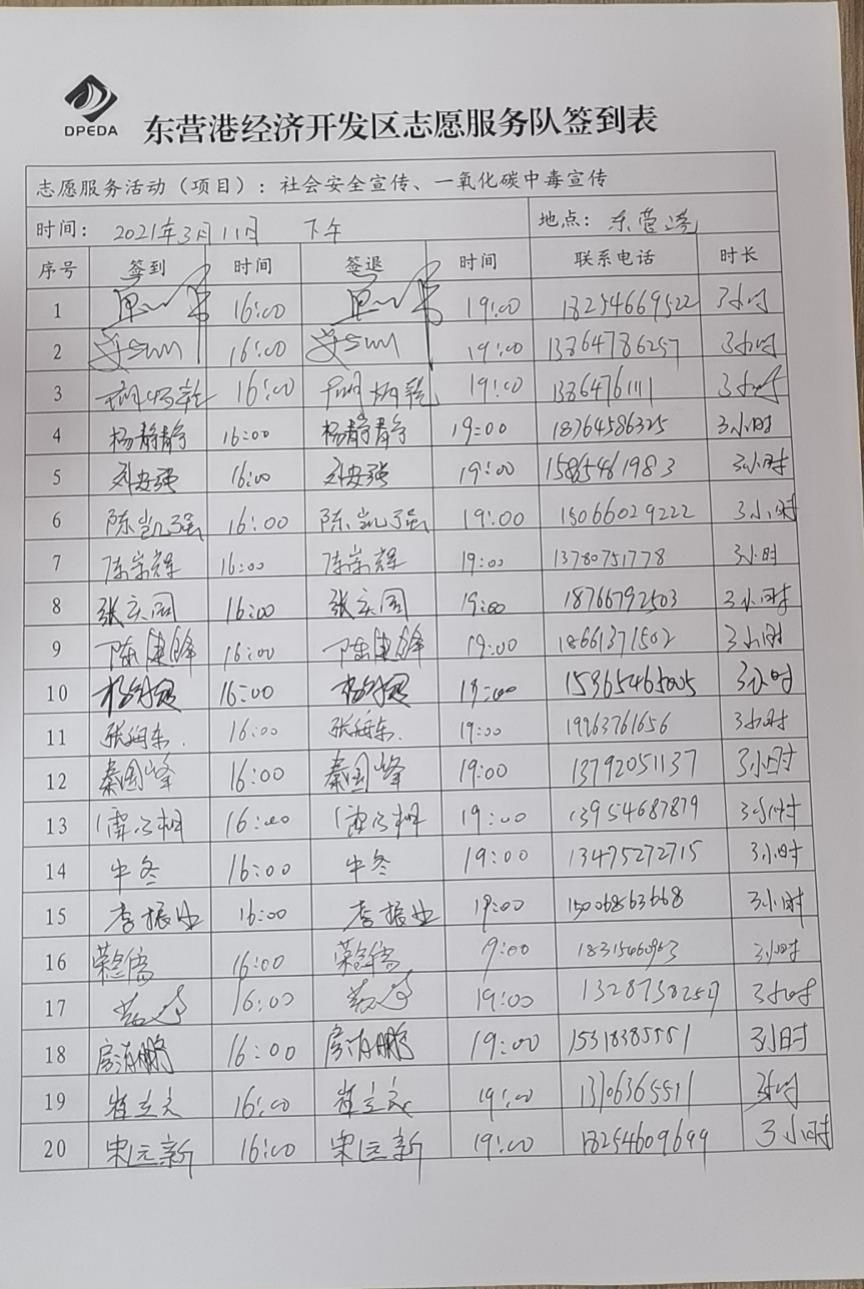 DPEDA
东营港经济开发区志愿服务队签到表
志愿服务活动（项目）：社会安全宣传、一氧化碳中毒宣传
时间： 2021年3月11日 下午 地点：东营港
序号 签到 时间 签退 时间 联系电话 时长
1 16:00 19:00 18254669522 3小时
2 16:00 19:00 13864786257 3小时
3 16:00 19:00 13864761111 3小时
4 杨静静 16:00 杨静静 19:00 18764586325 3小时
5 刘安强 16:00 刘安强 19:00 15865461983 3小时
6 陈凯强 16:00 陈凯强 19:00 15066029222 3小时
7 陈崇辉 16:00 陈崇辉 19:00 13780751778 3小时
8 张庆国 16:00 张庆国 19:00 18766792503 3小时
9 陈建锋 16:00 陈建锋 19:00 18661371502 3小时
10 16:00 19:00 3小时
11 16:00 19:00 19963761656 3小时
12 秦国峰 16:00 秦国峰 19:00 13792051137 3小时
13 16:00 19:00 13954687879 3小时
14 牛冬 16:00 牛冬 19:00 13475272715 3小时
15 李振业 16:00 李振业 19:00 15006863668 3小时
16 16:00 9:00 3小时
17 16:00 19:00 3小时
18 16:00 19:00 3小时
19 崔立文 16:00 崔立文 19:00 3小时
20 宋远新 16:00 宋远新 19:00 18254609699 3小时